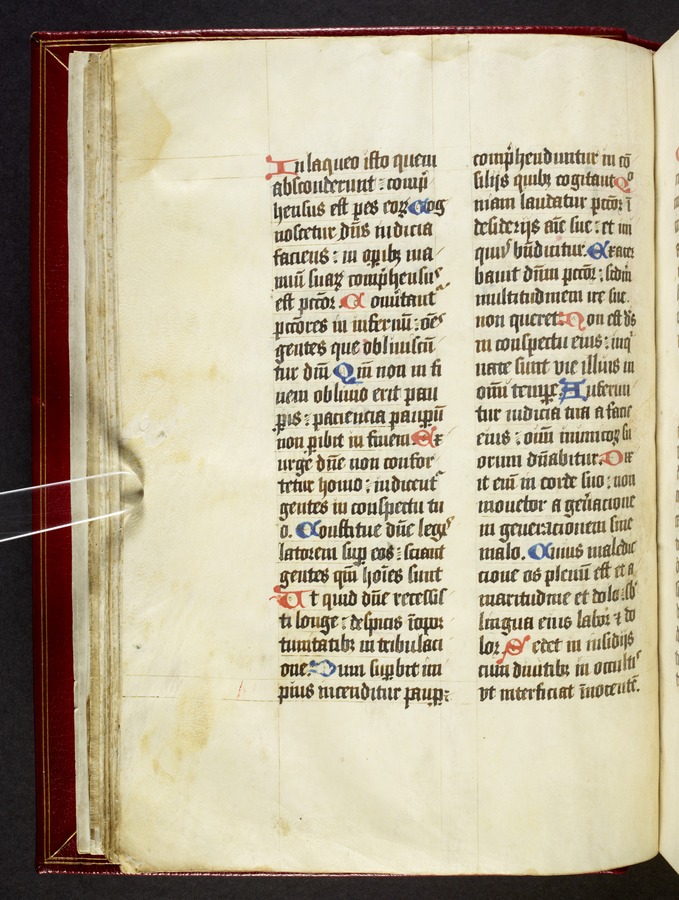 In laqueo isto quem
absconderunt : comp̄
hensus est pes eoꝝ Cog
noscetur dn̄s iudicia
faciens : in opibꝫ ma
nuū suaꝝ comp̄hensus
est pctōr. Conūtant
pctōres in infernū : oēs
gentes que obliuiscū
tur dm̄ Qm̄ non in fi
nem obliuio erit pau
ꝑis : paciencia pauꝑū
non ꝑibit in finem Ex
urge dn̄e non confor
tetur homo : iudicent̄
gentes in conspectu tu
o. Constitue dn̄e legꝭ
latorem suꝑ eos : sciant
gentes qm̄ hoīes sunt
Ut quid dn̄e recessis
ti longe : despicis īopor
tunitatibꝫ in tribulaci
one. Dum suꝑbit im
pius incenditur pauꝑ :
comp̄henduntur in cō
silijs quibꝫ cogitant Qo
niam laudatur pctōr ī
desiderijs aīe sue : et in
iquus bn̄dicitur. Exacer
bauit dn̄m pctōr : scdm̄
multitudinem ire sue
non queret : Non est ds̄
in conspectu eius : inq
nate sunt vie illius in
om̄i tempe. Auferun
tur iudicia tua a facie
eius : oīm inimicoꝝ su
orum dn̄abitur. Dix
it em̄ in corde suo : non
mouebor a gen̄acione
in generacionem sine
malo. Cuius maledic
cione os plenū est et a
maritudine et dolo : sb̄
lingua eius labor & do
lor. Sedet in insidijs
cum diuitibꝫ in occultis
vt interficiat īnocentē.